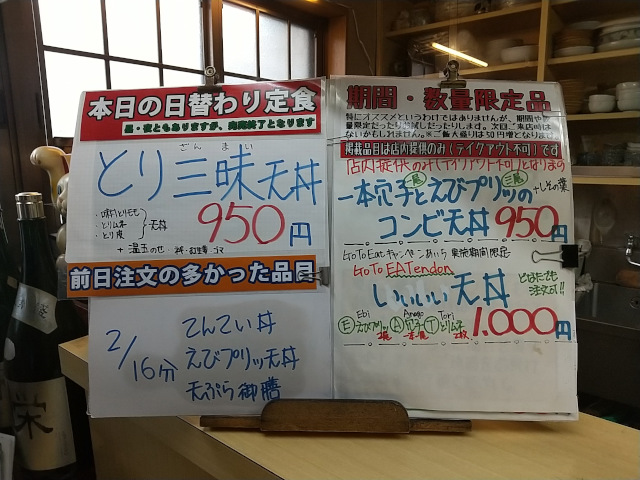 本日の日替わり定食
昼・夜ともありますが、完売終了となります
ざんまい
とり三昧天丼
・とりモモ
・とりムネ
・とり皮
天丼
950円
+温玉のせ
前日注文の多かった品目
2/16分
てんてい丼
えびプリッ天丼
天ぷら御膳
期間・数量限定品
特にオススメというわけではありませんが、期間や
量限定だったりお試しだったりします。次回ご来店時は
ないかもしれません。※ご飯大盛りは50円増となります。
掲載品目は店内提供のみ(テイクアウト不可)です
店内提供のみ(テイクアウト不可)となります
一本穴子とえびプリッの
+しその葉
コンビ天丼 950円
GoToEatキャンペーンあいち 実施期間限定
GoTo EATendon
どなたでも
注文可!!
いいいい天丼
Ebi Anago Tori
Eえびプリッ A穴子 Tとりムネ
2尾 一本 2枚
1.000円
栄